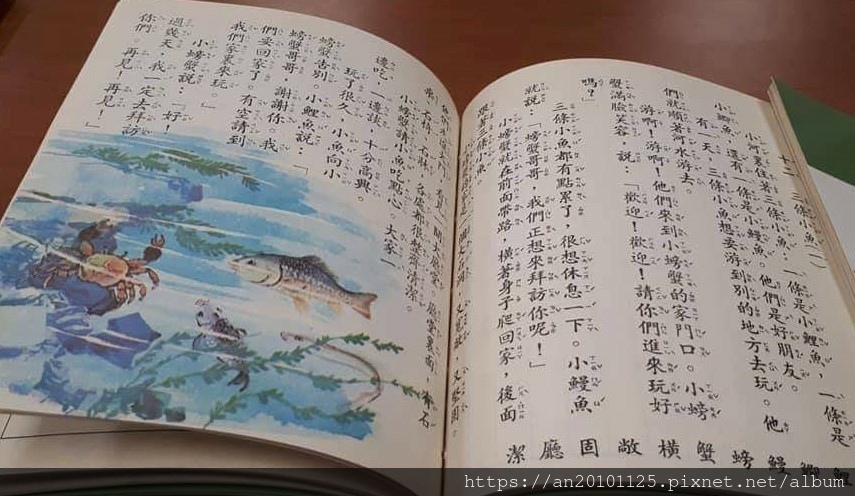 十二 三條小魚(一)
小河裏住著三條小魚：一條是小鯉魚，一條是
小鯽魚，還有一條是小鰻魚。他們是好朋友。
有一天，三條小魚想要游到別的地方去玩。他
們就順著河水游去。
游啊！游啊！他們來到小螃蟹的家門口。小螃
蟹滿臉笑容，說：「歡迎！歡迎！請你們進來玩好
嗎？」
三條小魚都有點累了，很想休息一下。小鰻魚
就說：「螃蟹哥哥，我們正想來拜訪你呢！」
小螃蟹就在前面帶路，橫著身子爬回家，後面
跟著三條小魚。
鯉 鯽 鰻 螃 蟹 橫 敞 固 廳 潔
又寬敞，又堅固。
一間大廳堂。廳堂裏面，有石
石椅、石牀，各處都很整齊清潔。
小螃蟹請小魚吃點心。大家一
邊吃，一邊談，十分高興。
玩了很久，小魚向小
螃蟹告別。小鯉魚說：「
螃蟹哥哥，謝謝你。我
們要回家了。有空請到
我們家裏來玩。」
小螃蟹說：「好！
過幾天，我一定去拜訪
你們。再見！再見！」
https://an20101125.pixnet.net/album